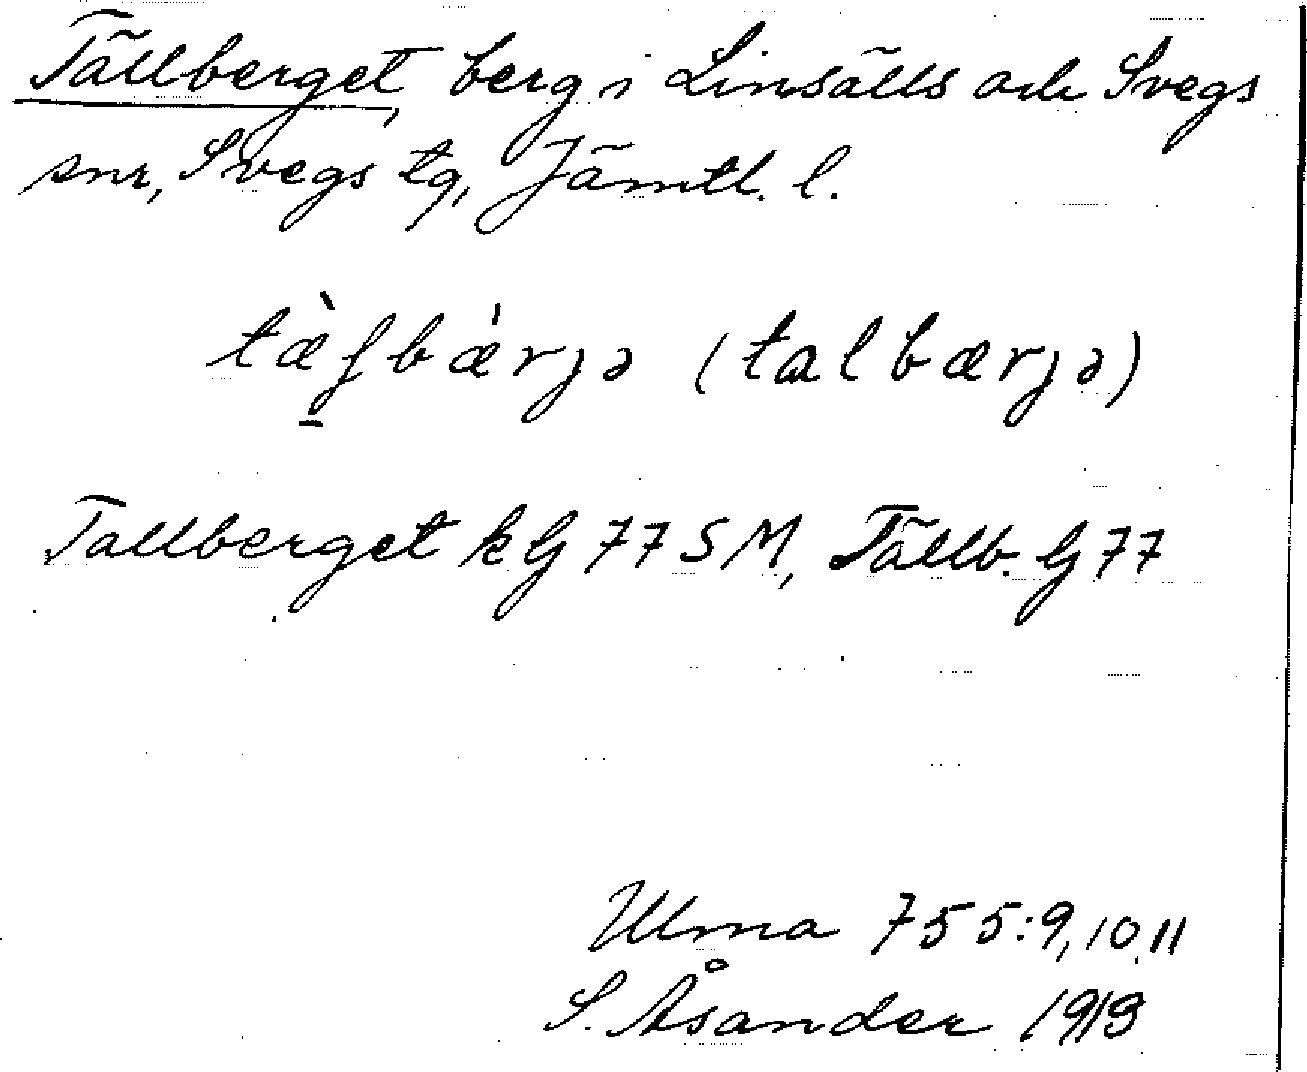 Tällberget, berg i Linsälls och Svegs
snr, Svegs tg, Jämtl. l.
tæ̀ʃbæ̀rjə (talbærjə)
Tallberget k G 77 SM, Tällb. G 77
Ulma 755:9, 10, 11
S. Åsander 1913